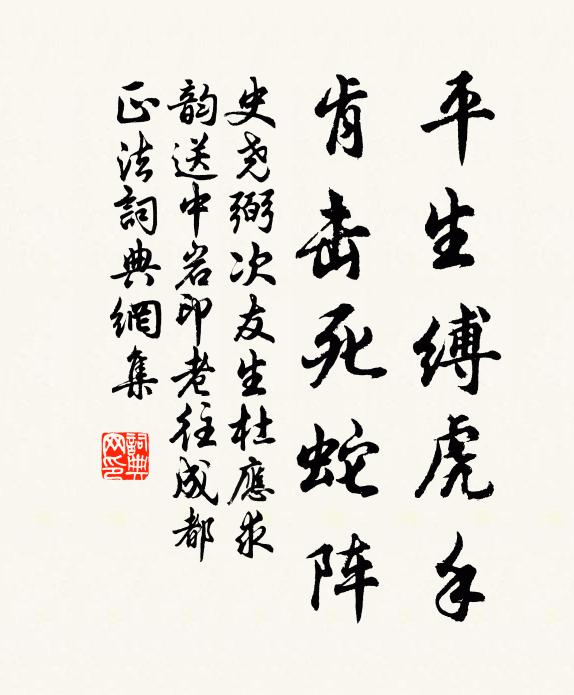 平生缚虎手
肯击死蛇阵
史尧弼次友生杜應求
韵送中岩印老往成都
正法詞典網集